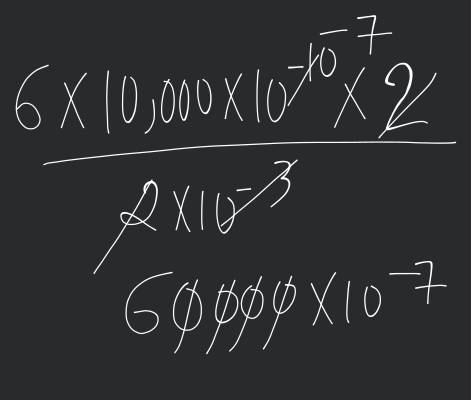 6 × 10,000 × 10⁻¹⁰ ⁻⁷ × 2
2 × 10⁻³
60000 × 10⁻⁷